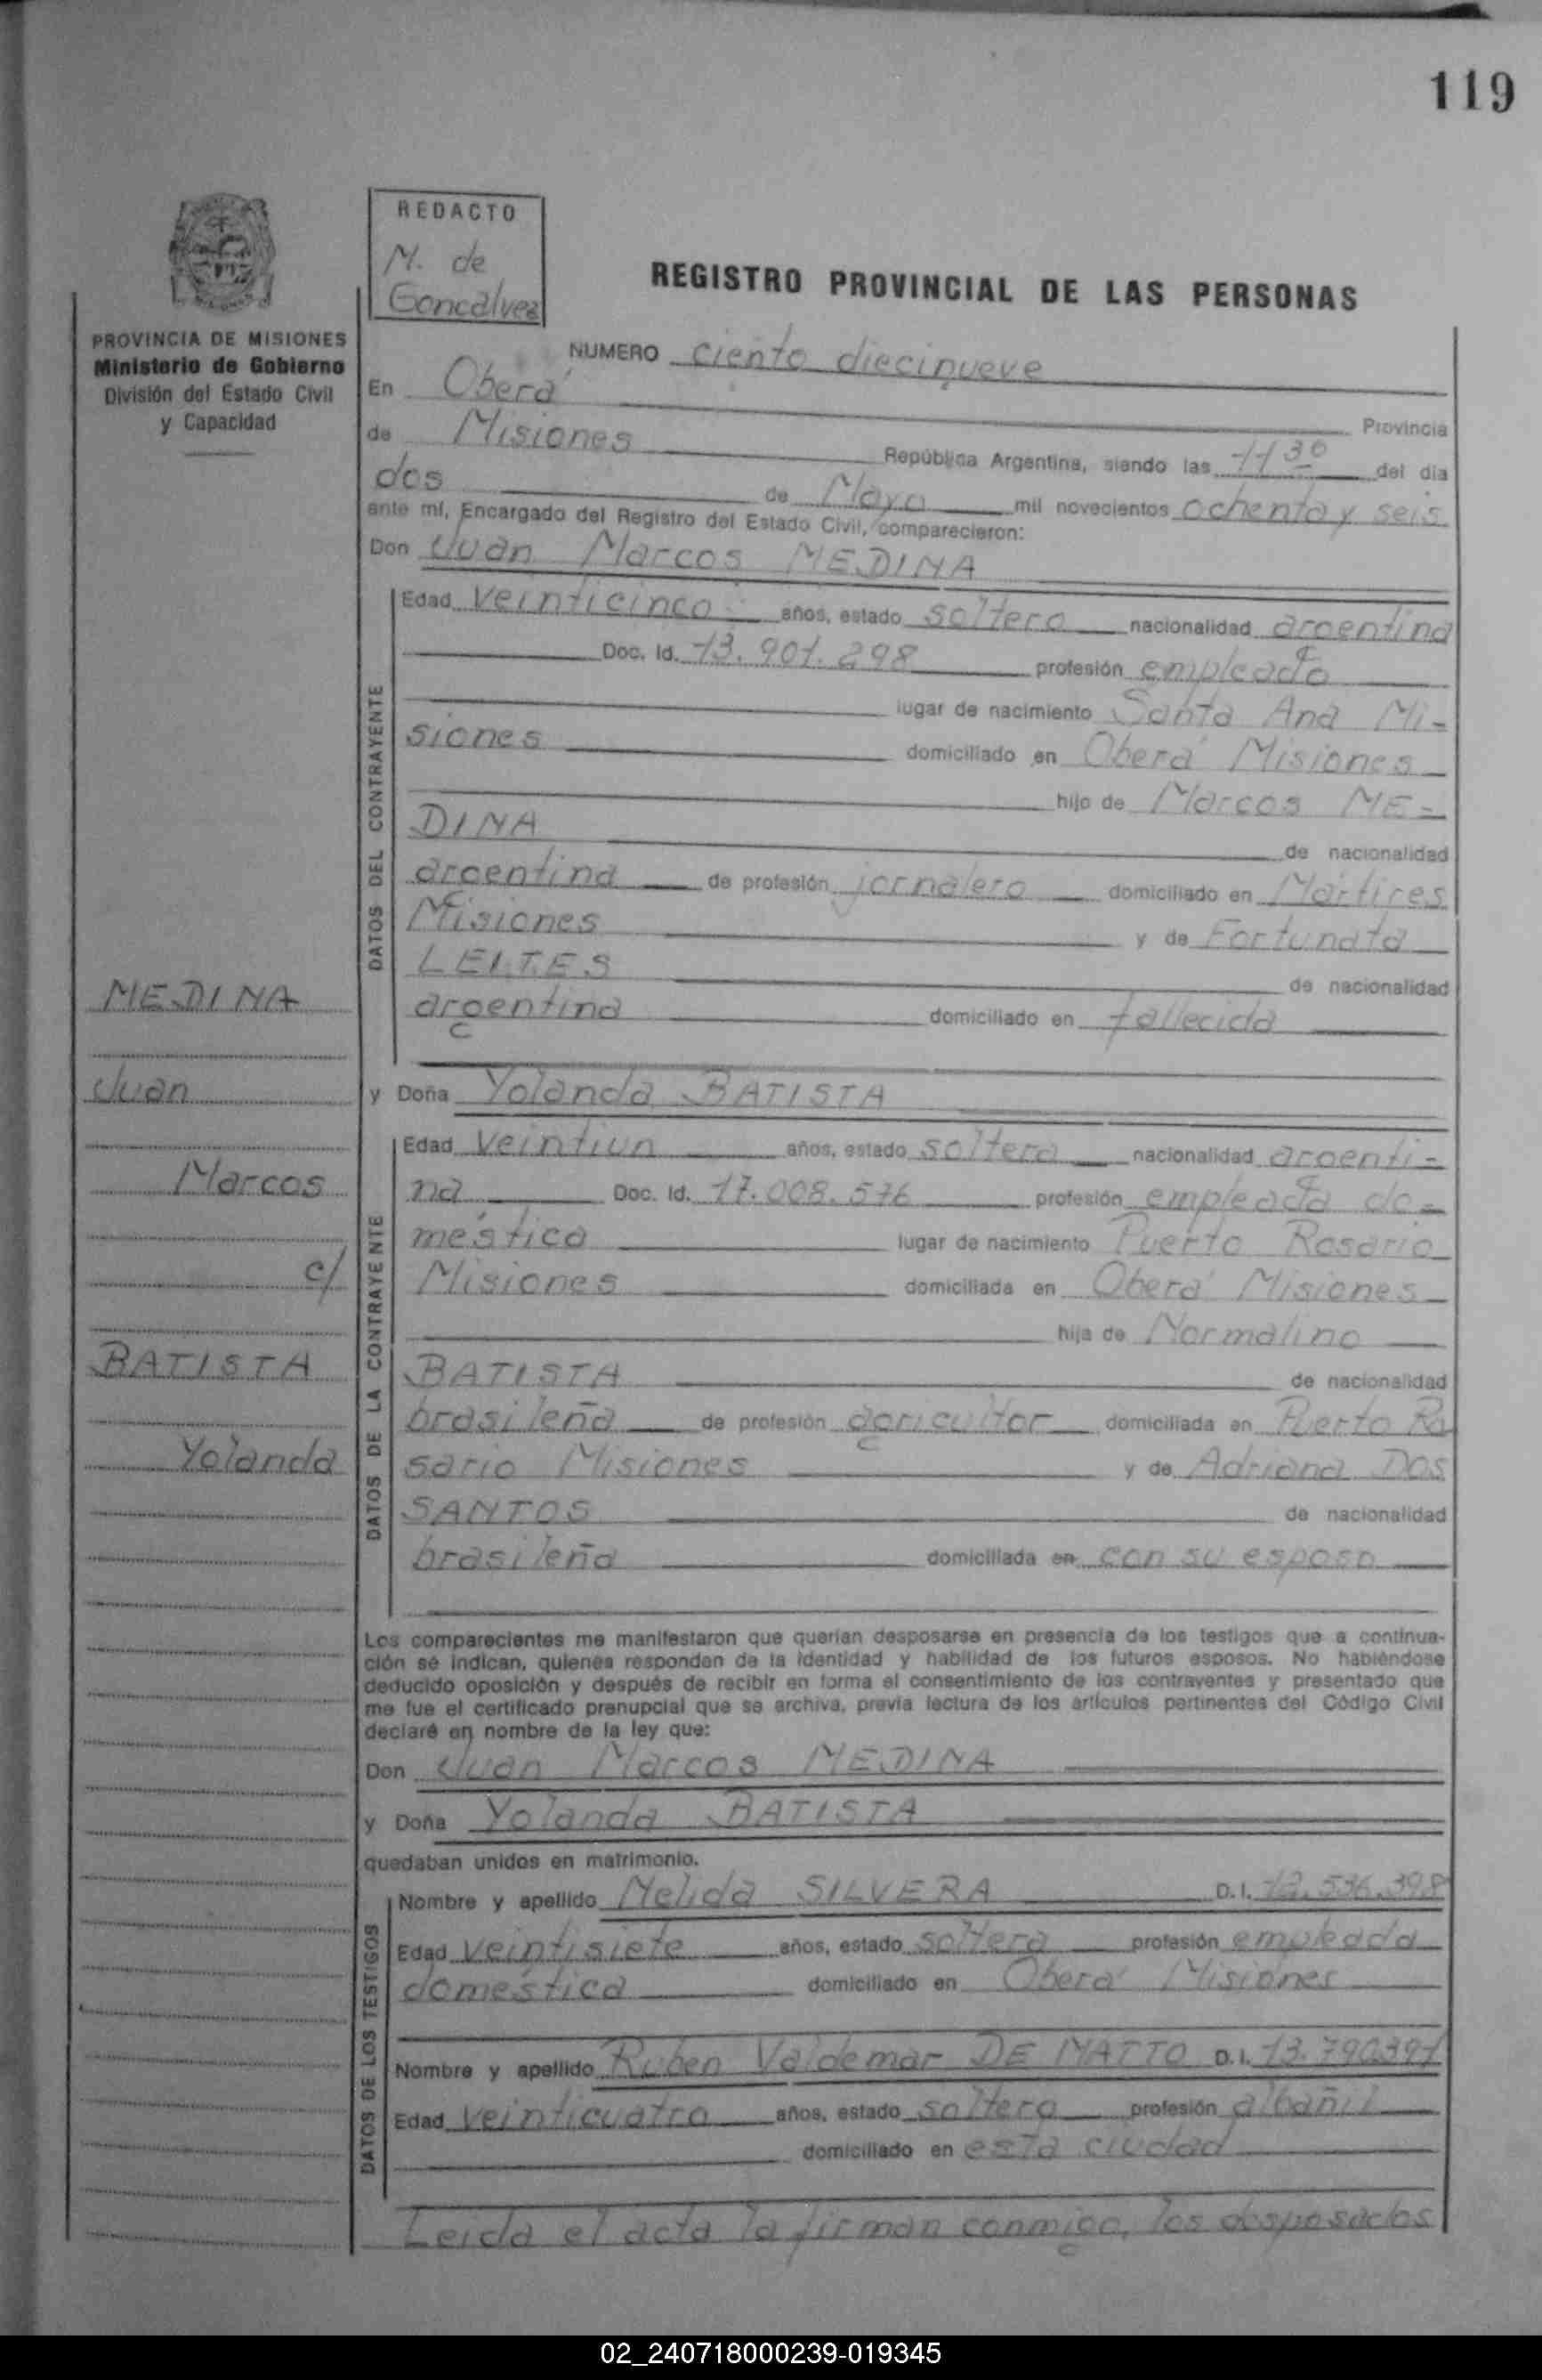 119
REDACTO
M. de
Goncalvez
REGISTRO PROVINCIAL DE LAS PERSONAS
PROVINCIA DE MISIONES
Ministerio de Gobierno
División del Estado Civil
y Capacidad
NUMERO ciento diecinueve
En Oberá
Provincia
de Misiones República Argentina, siendo las 11 30 del día
dos de Mayo mil novecientos ochenta y seis
ante mí, Encargado del Registro del Estado Civil, comparecieron:
Don Juan Marcos MEDINA
DATOS DEL CONTRAYENTE
Edad veinticinco años, estado soltero nacionalidad argentina
Doc. Id. 13.901.298 profesión empleado
lugar de nacimiento Santa Ana Mi-
siones domiciliado en Oberá Misiones
hijo de Marcos ME-
DINA de nacionalidad
argentina de profesión jornalero domiciliado en Mártires
Misiones y de Fortunata
LEITES de nacionalidad
argentina domiciliado en fallecida
MEDINA
Juan
Marcos
c/
BATISTA
Yolanda
y Doña Yolanda BATISTA
DATOS DE LA CONTRAYENTE
Edad veintiun años, estado soltera nacionalidad argenti-
na Doc. Id. 17.008.576 profesión empleada do-
méstica lugar de nacimiento Puerto Rosario
Misiones domiciliada en Oberá Misiones
hija de Normalino
BATISTA de nacionalidad
brasileña de profesión agricultor domiciliada en Puerto Ro
sario Misiones y de Adriana DOS
SANTOS de nacionalidad
brasileña domiciliada en con su esposo
Los comparecientes me manifestaron que querían desposarse en presencia de los testigos que a continua-
ción se indican, quienes responden de la identidad y habilidad de los futuros esposos. No habiéndose
deducido oposición y después de recibir en forma el consentimiento de los contrayentes y presentado que
me fue el certificado prenupcial que se archiva, previa lectura de los artículos pertinentes del Código Civil
declaré en nombre de la ley que:
Don Juan Marcos MEDINA
y Doña Yolanda BATISTA
quedaban unidos en matrimonio.
DATOS DE LOS TESTIGOS
Nombre y apellido Nelida SILVERA D.I. 12.536.398
Edad veintisiete años, estado soltera profesión empleada
doméstica domiciliado en Oberá Misiones
Nombre y apellido Ruben Valdemar DE MATTO D.I. 13.790391
Edad veinticuatro años, estado soltero profesión albañil
domiciliado en esta ciudad
Leida el acta la firman conmigo, los desposados
02_240718000239-019345